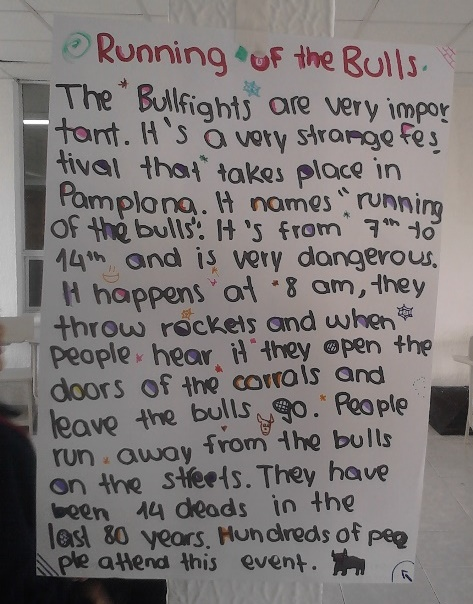 Running of the Bulls.
The Bullfights are very impor
tant. It's a very strange fes
tival that takes place in
Pamplona. It names "running
of the bulls". It's from 7th to
14th and is very dangerous.
It happens at 8 am, they
throw rockets and when
people hear it they open the
doors of the corrals and
leave the bulls go. People
run away from the bulls
on the streets. They have
been 14 deads in the
last 80 years. Hundreds of peo
ple attend this event.